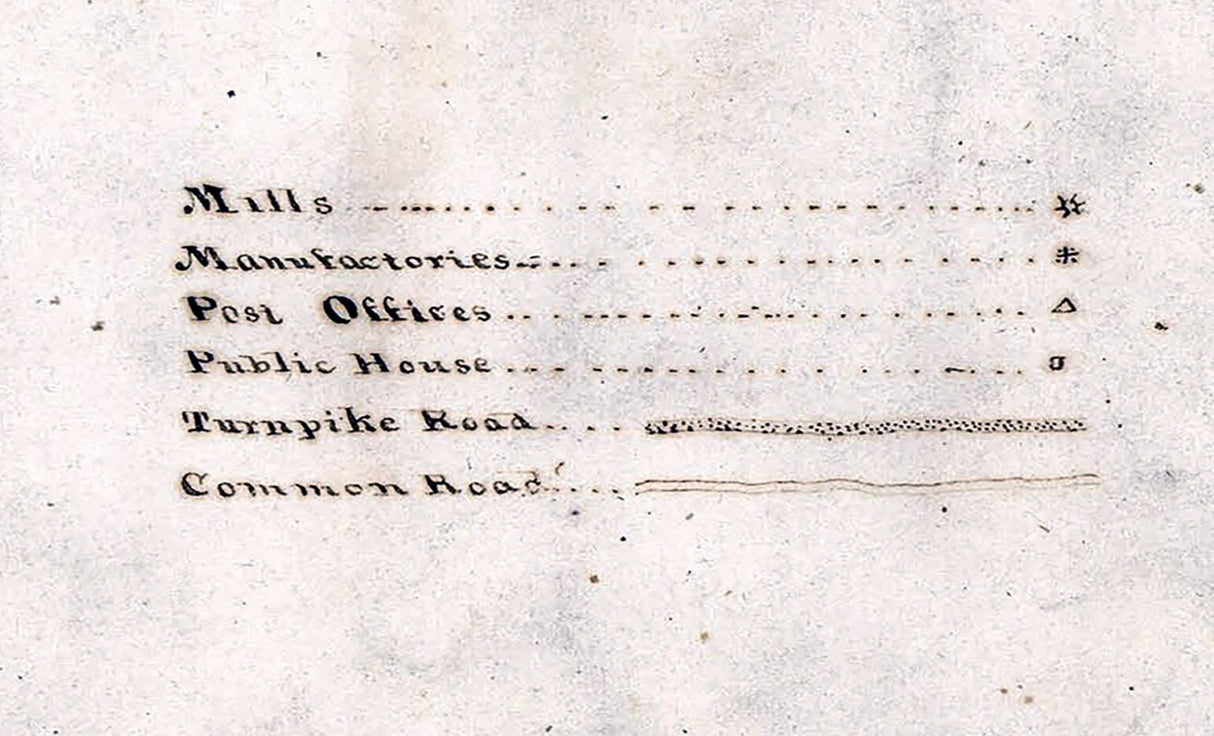 Mills
Manufactories
Post Offices
Public House
Turnpike Road
Common Road